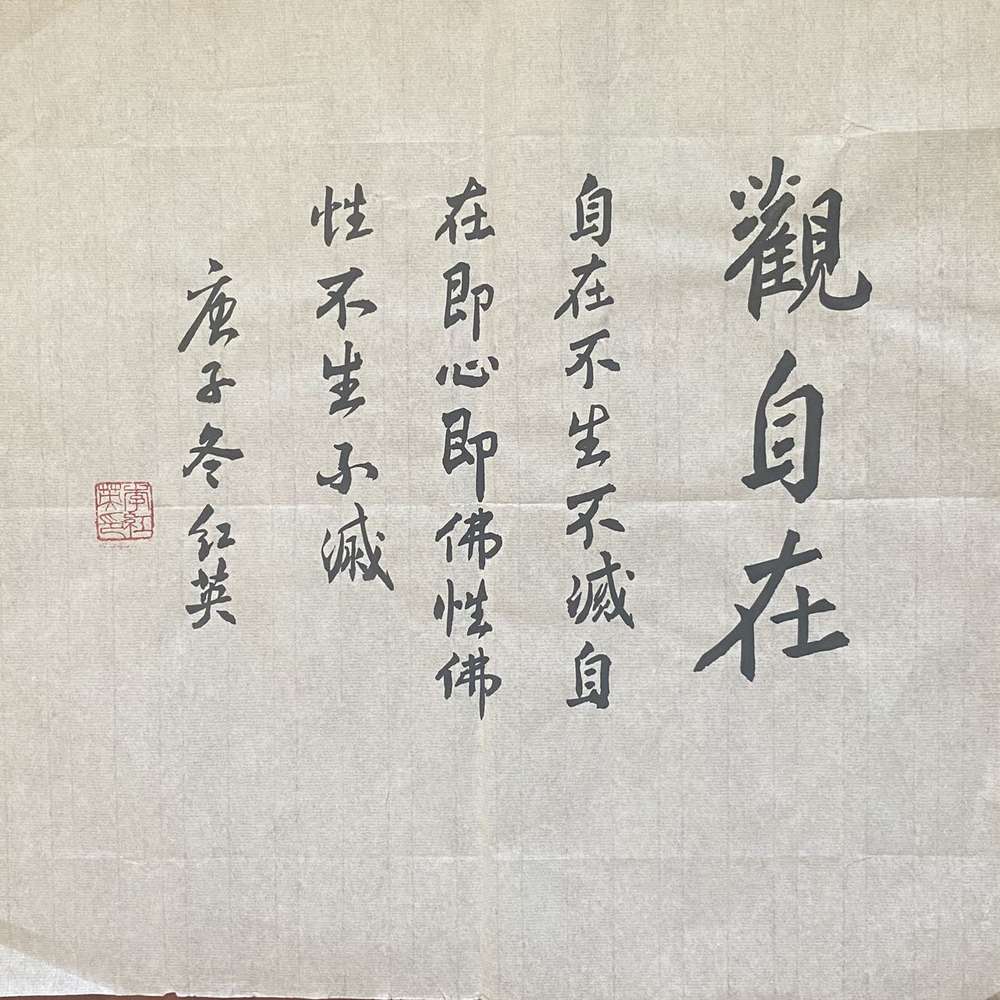 觀自在
自在不生不滅自
在即心即佛性佛
性不生不滅
庚子冬红英
李红英印